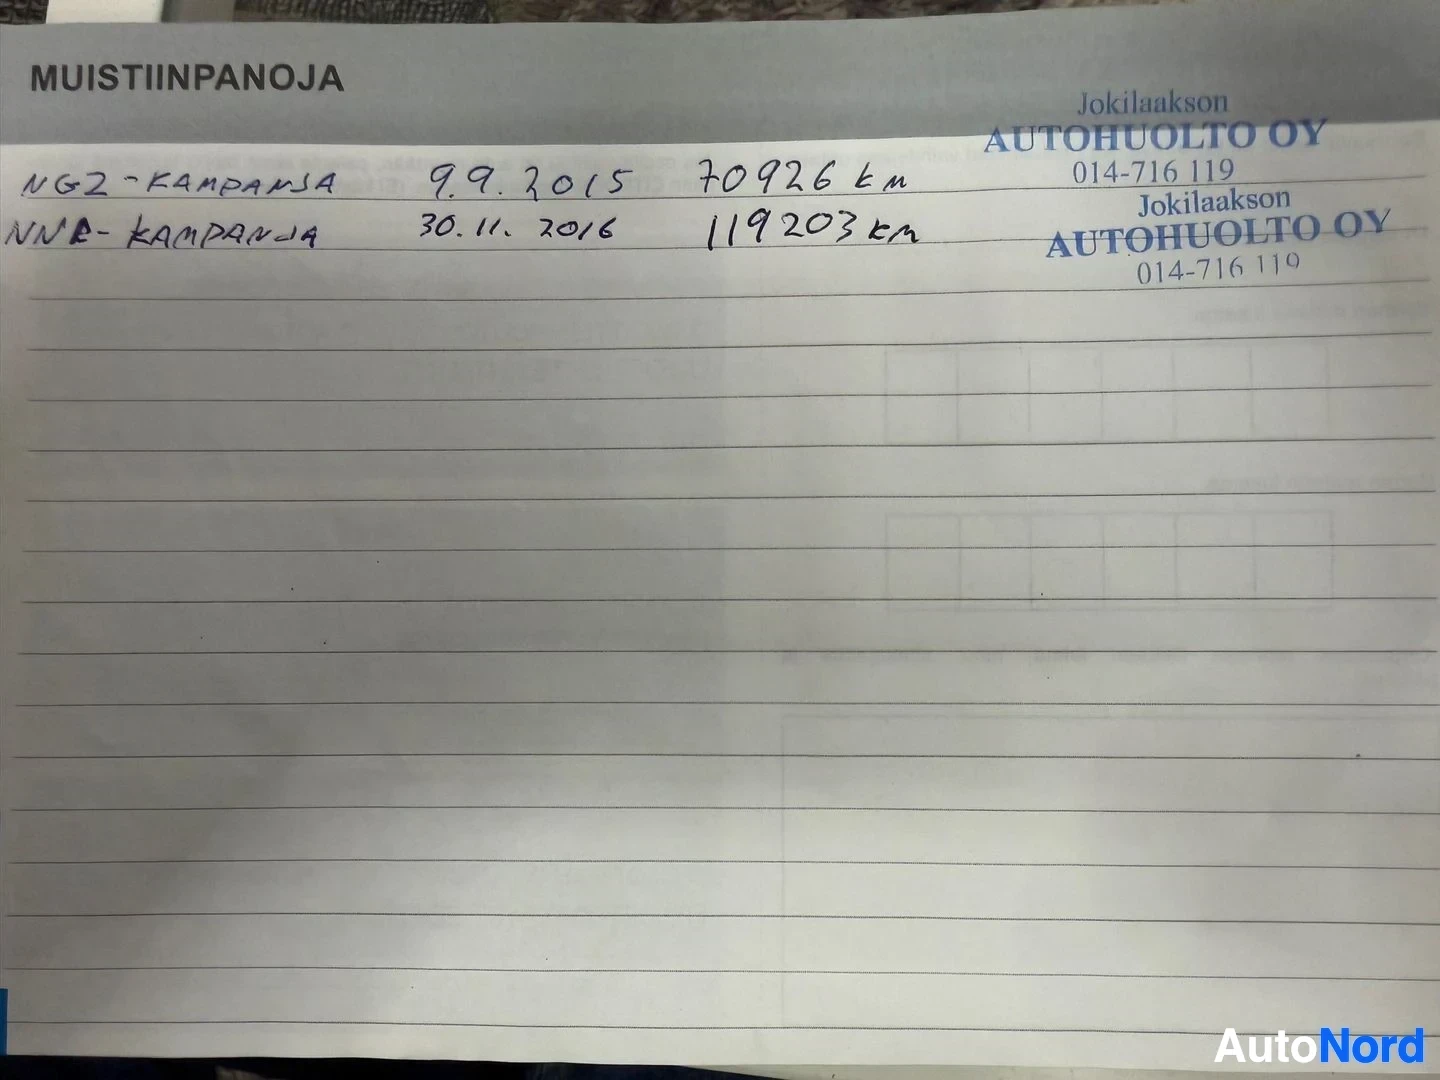 MUISTIINPANOJA
Jokilaakson
AUTOHUOLTO OY
014-716 119
NGZ-KAMPANJA 9.9.2015 70926 km
Jokilaakson
AUTOHUOLTO OY
014-716 119
KAMPANJA 30.11.2016 119203 km
AutoNord